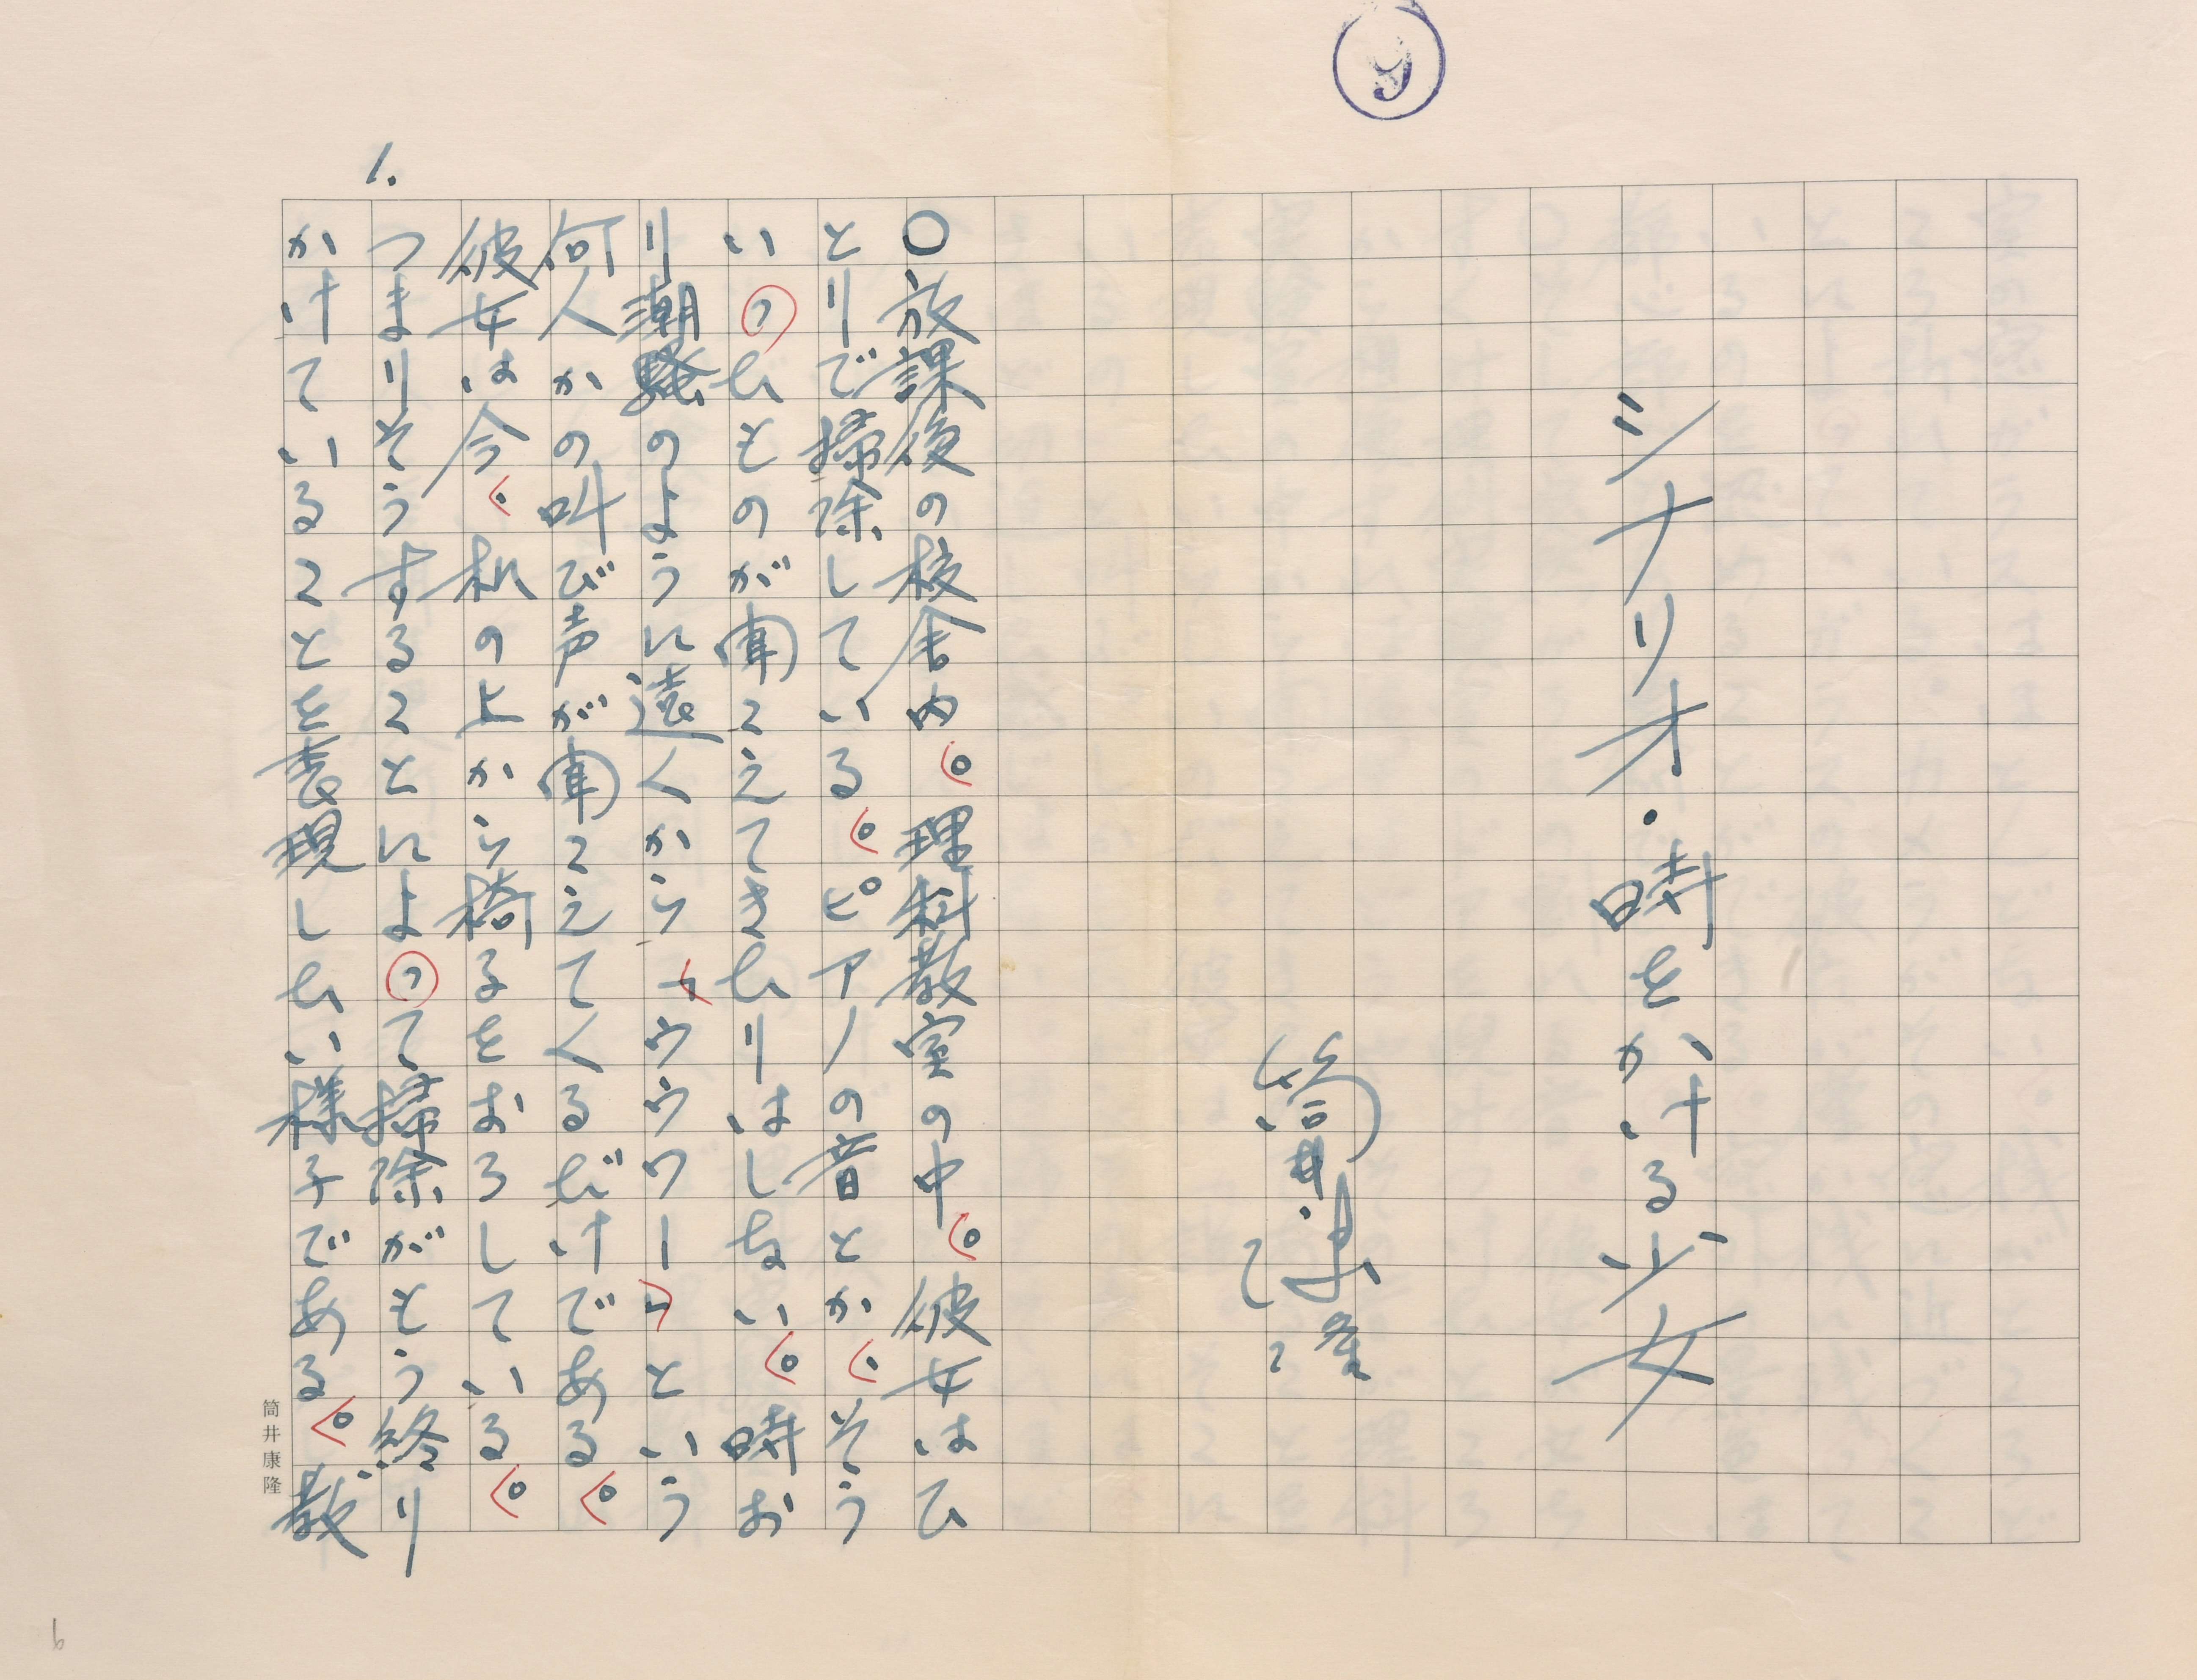 シナリオ・時をかける少女
筒井康隆
○放課後の校舎内。理科教室の中。彼女はひ
とりで掃除している。ピアノの音とか、そう
いったものが聞こえてきたりはしない。時お
り潮騒のように遠くから「ウウウワーッ」という
何人かの叫び声が聞こえてくるだけである。
彼女は今、机の上から椅子をおろしている。
つまりそうすることによって掃除がもう終り
かけていることを表現したい様子である。教
1.
筒井康隆